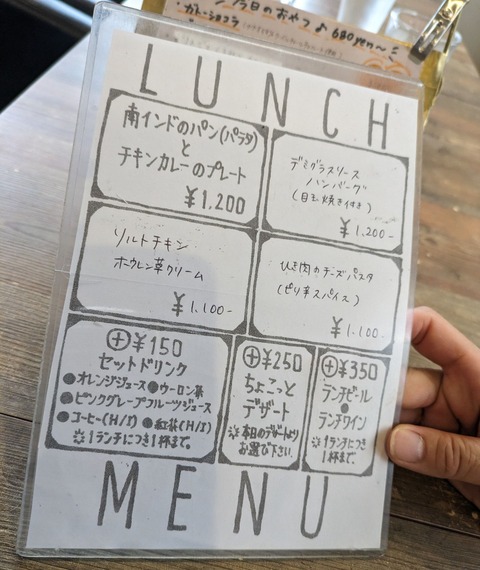 今日のおやつ♪ 680yen〜
・ガトーショコラ
LUNCH
南インドのパン(パラタ)
と
チキンカレーのプレート
¥1.200
デミグラスソース
ハンバーグ
(目玉焼き付き)
¥1.200-
ソルトチキン
ホウレン草クリーム
¥1.100-
ひき肉のチーズパスタ
(ピリ辛スパイス)
¥1.100-
⊕¥150
セットドリンク
●オレンジジュース●ウーロン茶
●ピンクグレープフルーツジュース
●コーヒー(H/I) ●紅茶(H/I)
※1ランチにつき1杯まで。
⊕¥250
ちょこっと
デザート
※本日のデザートより
お選び下さい。
⊕¥350
ランチビール
●
ランチワイン
※1ランチにつき
1杯まで。
MENU